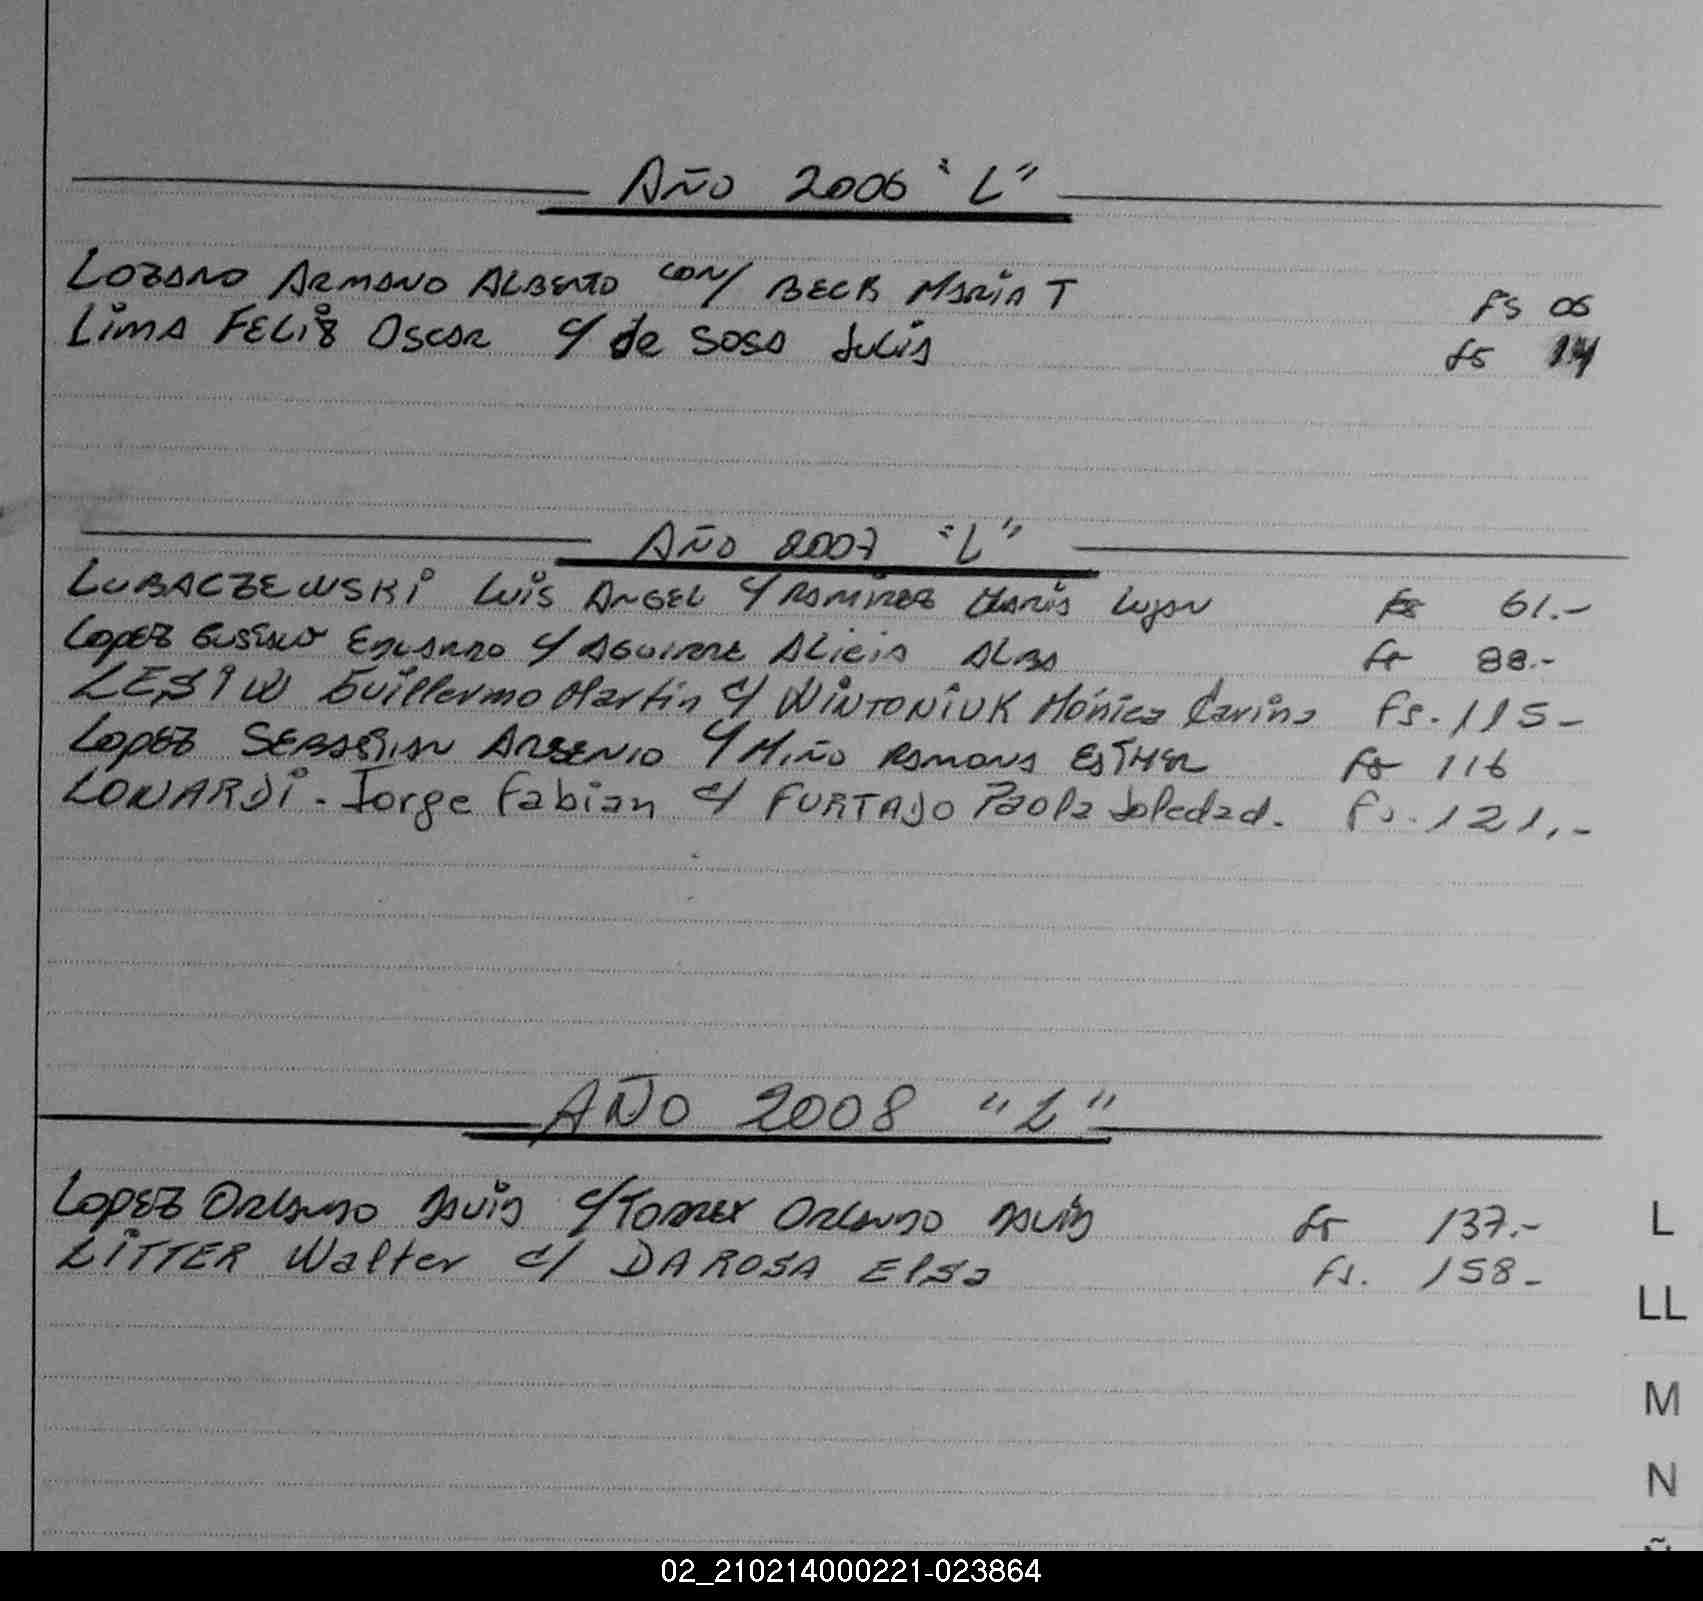 AÑO 2006 "L"
LOZANO ARMANO ALBERTO CON/ BECK MARIA T FS 06
LIMA FELIZ OSCAR C/ de SOSA Julia fs 14
AÑO 2007 "L"
LUBACZEWSKI LUIS ANGEL C/ RAMIREZ Maria Lujan Fs 61.-
LOPEZ GUSTAVO EDUARDO C/ AGUIRRE ALICIA ALBA fs 88.-
LESIW Guillermo Martin C/ WINTONIUK Mónica Carina Fs. 115-
LOPEZ SEBASTIAN ARSENIO C/ MIÑO RAMONA ESTHER fs 116
LONARDI. Jorge Fabian C/ FURTADO Paola Soledad. Fs. 121.-
AÑO 2008 "L"
LOPEZ ORLANDO C/ ORLANDO fs 137.-
LITTER Walter C/ DA ROSA Elsa Fs. 158-
L
LL
M
N
Ñ
02_210214000221-023864